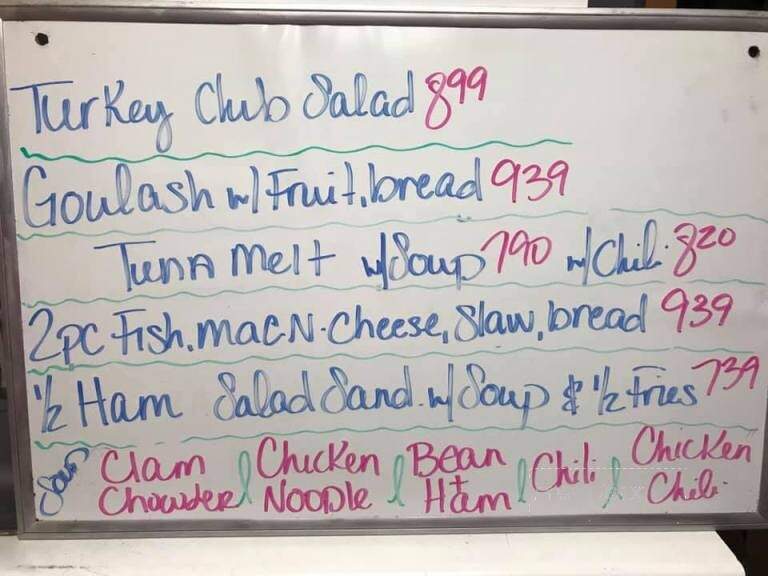 Turkey Club Salad 899
Goulash w/ Fruit, bread 939
Tuna Melt w/Soup 790 w/Chili 820
2pc Fish, Mac N. Cheese, Slaw, bread 939
1/2 Ham Salad Sand. w/ Soup & 1/2 Fries 739
Soup Clam Chowder Chicken Noodle Bean + Ham Chili Chicken Chili